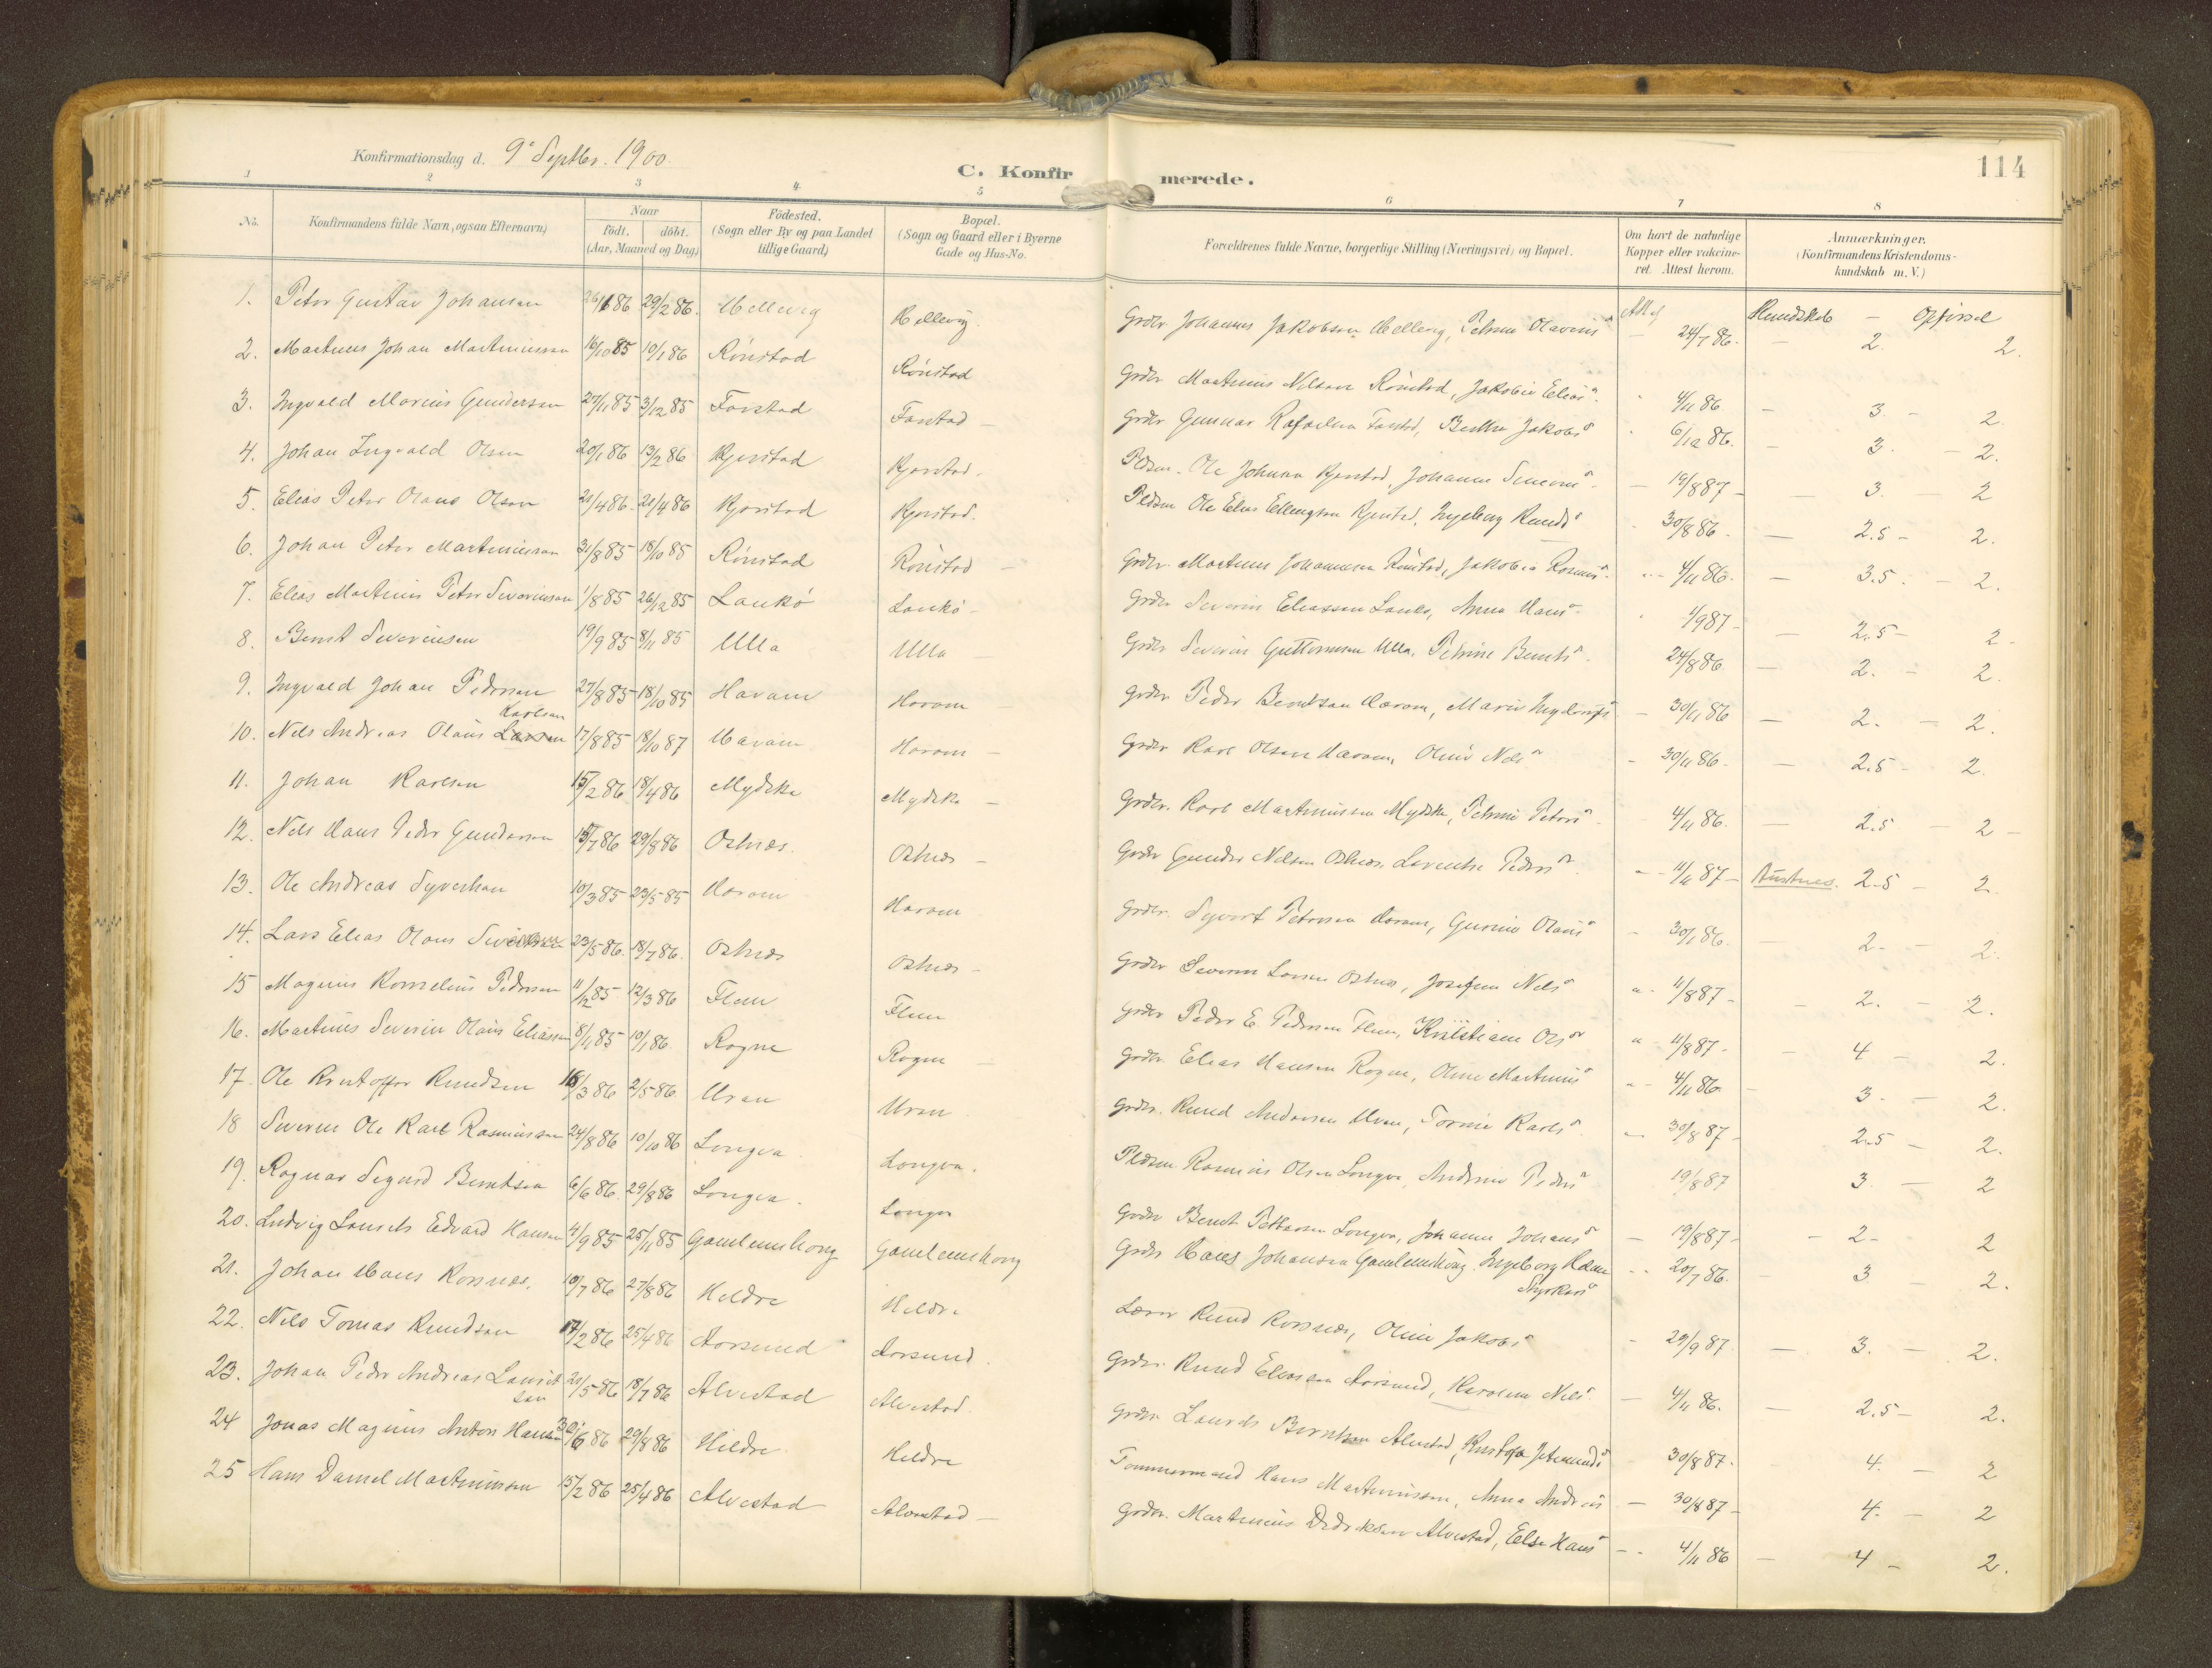 114
Konfirmationsdag d. 9de Septbr. 1900.
C. Konfirmerede.
1 2 3 4 5 6 7 8
No. Konfirmandens fulde Navn, ogsaa Efternavn) Naar født. døbt. (Aar, Maaned og Dag) Födested. (Sogn eller By og paa Landet tillige Gaard) Bopæl. (Sogn og Gaard eller i Byerne Gade og Hus-No. Forældrenes fulde Navne, borgerlige Stilling (Næringsvei) og Bopæl. Om havt de naturlige Kopper eller vakcineret. Attest herom. Anmærkninger. (Konfirmandens Kristendomskundskab m. V.)
Kundskab — Opførsel
1. Peter Gustav Johansen 26/1 86 29/2 86. Hellevig Hellevig. Grdbr Johannes Jakobsen Hellevig, Petrine Olavius 24/7 86. 2. 2.
2. Martinus Johan Martinussen 16/10 85 10/1 86 Rönstad Rönstad Grdbr Martinus Nilsen Rönstad, Jakobie Elias 4/11 86 3. 2.
3. Ingvald Marius Gundersen 27/11 85 3/12 85 Farstad Farstad Grdbr Gunnar Rafaelsen Farstad, Jakobs 6/12 86. 3. 2.
4. Johan Ingvald Olsen 20/1 86 13/2 86 Kjerstad Kjerstad. Pldsm. Ole Johnsen Kjerstad, Johanne 19/8 87 3. 2
5. Elias Peter Olaus Olsen 21/4 86. 21/4 86 Kjerstad Kjerstad. Pldsm Ole Elias Ellingsen Kjerstad, Ingeborg Knuds 30/8 86. 2.5 2.
6. Johan Peter Martinussen 31/8 85 18/10 85 Rönstad Rönstad Grdbr. Martinus Johannesen Rönstad, Jakobia Rasmus 4/11 86. 3.5. 2.
7. Elias Martinus Peter Severinsen 1/8 85 26/12 85 Laukö Laukö Grdbr Severin Eliassen Laukö, Anna Hans 1/9 87 2.5 2
8. Bernt Severinsen 19/9 85 8/11 85 Ulla Ulla Grdbr Severin Guttormsen Ulla, Petrine Bernts 24/8 86 2. 2.
9. Ingvald Johan Pedersen 27/8 85 18/10 85 Haram Haram Grdbr Peder Berntsen Haram, Marie 30/11 86 2. 2.
10. Nils Andreas Olaus Karlsen 17/8 85 18/10 87 Haram Haram Grdbr Karl Olsen Haram, Oline Nils 30/11 86. 2.5 2.
11. Johan Karlsen 15/2 86 18/4 86 Mydske Mydske Grdbr. Karl Martinussen Mydske, Petrine Peters 4/11 86. 2.5 2
12. Nils Hans Peder Gundersen 15/7 86 29/8 86 Ostnæs. Ostnæs Grdbr Gunder Nilsen Ostnæs, Laurentse Peders 11/11 87 Austnes. 2.5 2.
13. Ole Andreas Syvertsen 10/3 85 23/5 85 Haram Haram Grdbr. Syvert Petersen Haram, Gurine Olaus 30/1 86. 2. 2.
14. Lars Elias Olaus Severinsen 23/5 86. 18/7 86. Ostnæs Ostnæs Grdbr Severin Larsen Ostnæs, Josefine Nils 11/8 87 2. 2.
15 Magnus Kornelius Pedersen 11/12 85 12/3 86 Flem Flem Grdbr Peder E. Pedersen Flem, Kristiane Ols 11/8 87. 4 2.
16. Martinus Severin Olaus Eliassen 8/11 85 10/1 86. Rogne Rogne Grdbr. Elias Hansen Rogne, Oline Martinus 4/11 86. 3. 2.
17. Ole Kristoffer Knudsen 16/3 86 2/5 86 Uran Uran Grdbr. Knud Andersen Uran, Torine Karls 30/8 87 2.5 2.
18 Severin Ole Karl Rasmussen 24/8 86 10/10 86 Longva Longva. Pldsm Rasmus Olsen Longva, Andrine Peders 19/8 87 3 2
19. Ragnar Sigurd Berntsen 6/6 86. 29/8 86 Longva. Longva Grdbr Bernt Petersen Longva, Johanne Johans 19/8 87 2 2
20. Ludvig Laurits Edvard Hansen 4/9 85 25/11 85 Gamlemshoug Gamlemshoug Grdbr Hans Johansen Gamlemshoug. Ingeborg 20/7 86. 3 2.
21. Johan Hans Korsnæs. 10/7 86 27/8 86 Hildre Hildre Lærer Knud Korsnæs, Oline Jakobs 29/9 87 3. 2.
22. Nils Tomas Knudsen 14/2 86 25/4 86 Aarsund Aarsund. Grdbr. Knud Eliassen Aarsund, Karoline Nils 4/11 86. 2.5 2.
23. Johan Peder Andreas Lauritsen 21/5 86 18/7 86 Alvestad Alvestad Grdbr Laurits Berntsen Alvestad, 30/8 87. 4. 2
24 Jonas Magnus Anton Hansen 30/6 86 29/8 86 Hildre Hildre Tømmermand Hans Martinussen, Anna Andreas 30/8 87 4. 2
25 Hans Daniel Martinussen 15/2 86 25/4 86 Alvestad Alvestad Grdbr. Martinus Dideriksen Alvestad, Else Hans 4/11 86 4 2.